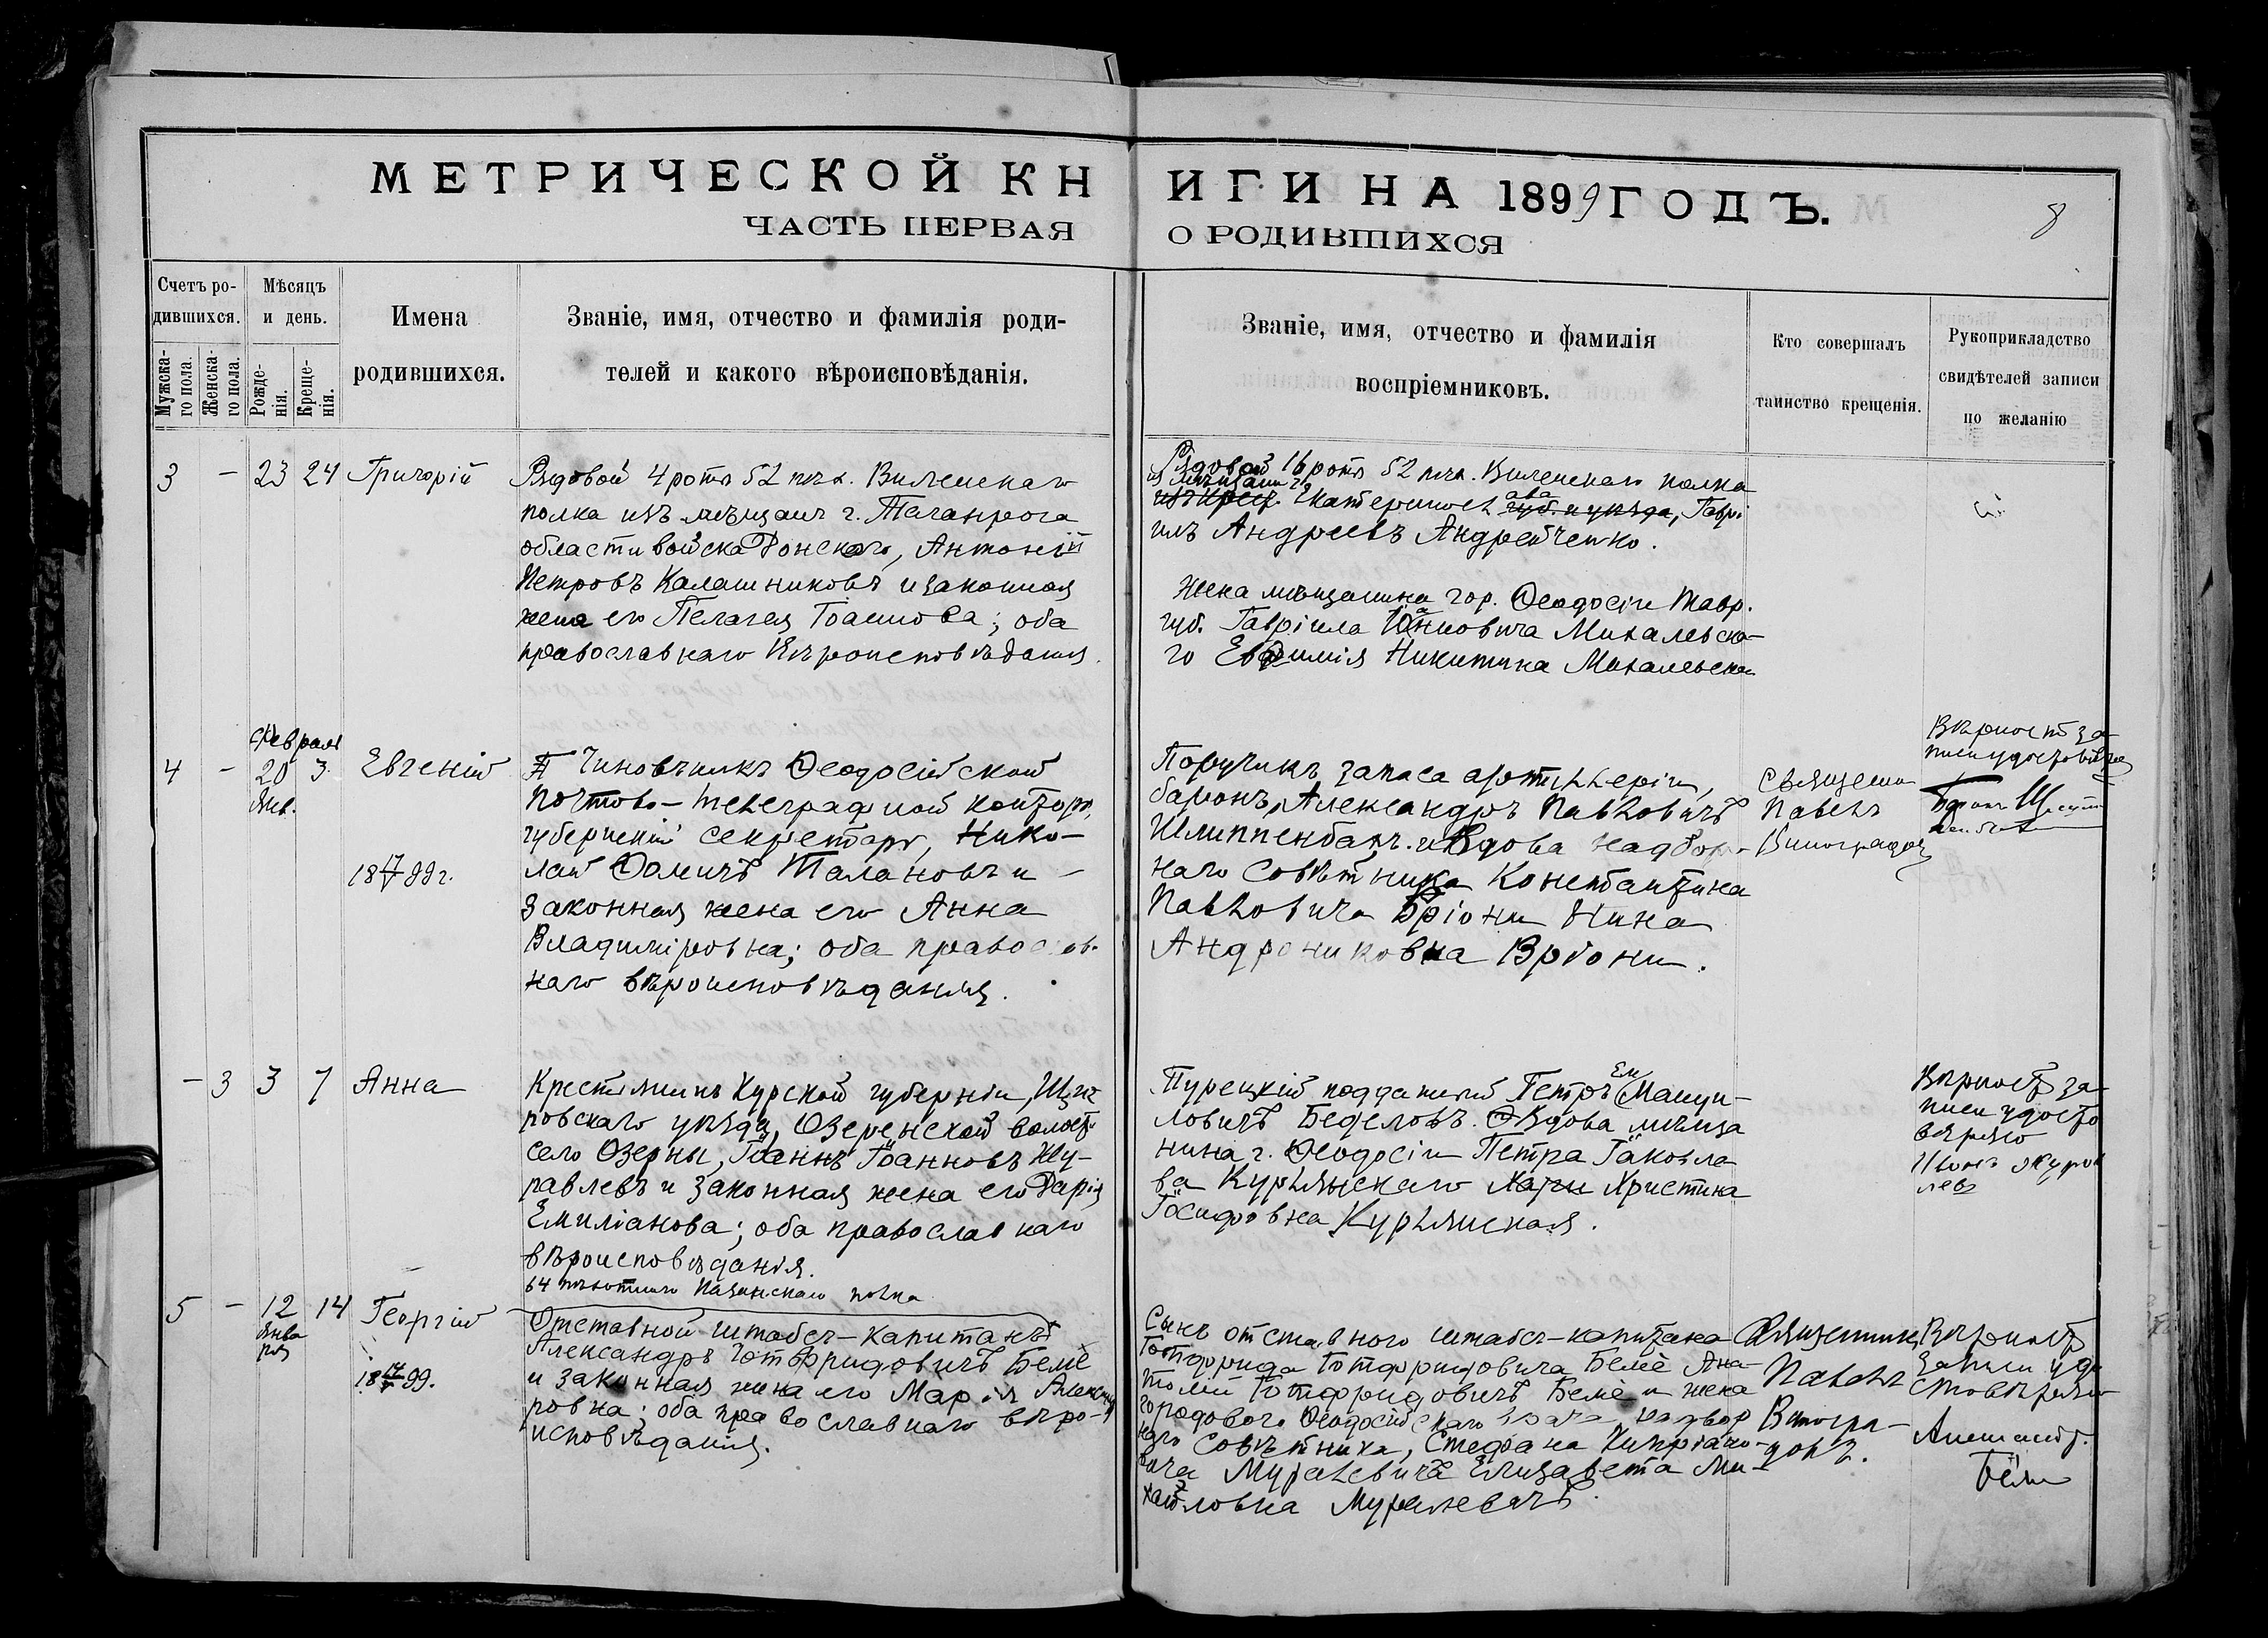 МЕТРИЧЕСКОЙ КНИГИ НА 1899 ГОДЪ.
8
ЧАСТЬ ПЕРВАЯ О РОДИВШИХСЯ
Счетъ ро-
дившихся.
Мужска-
го пола.
Женска-
го пола.
Мѣсяцъ
и день.
Рожде-
нія.
Креще-
нія.
Имена
родившихся.
Званіе, имя, отчество и фамилія роди-
телей и какого вѣроисповѣданія.
Званіе, имя, отчество и фамилія
воспріемниковъ.
Кто совершалъ
таинство крещенія.
Рукоприкладство
свидѣтелей записи
по желанію
3 - 23 24 Григорій
Рядовой 4 роты 52 пѣх. Виленскаго
полка изъ мѣщанъ г. Таганрога
области войска Донскаго, Антоній
Петровъ Калашниковъ и законная
жена его Пелагея Іоаннова; оба
православнаго вѣроисповѣданія.
Рядовой 16 роты 52 пѣх. Виленскаго полка
изъ мѣщанъ г.
изъ крест. Екатериносл ава губ. и уѣзда, Гаврі
илъ Андреевъ Андрейченко.
Жена мѣщанина гор. Ѳеодосіи Тавр.
губ. Гавріила Іоанновича Михалевска-
го Евфимія Никитина Михалевская
Февраля
4 - 20 3 Евгеній
Янв.
18 17/V 99 г.
Чиновникъ Ѳеодосійской
почтово-телеграфной конторы,
губернскій секретарь, Нико-
лай Ѳомичъ Талановъ и
законная жена его Анна
Владиміровна; оба православ-
наго вѣроисповѣданія.
Поручикъ запаса артиллеріи,
баронъ, Александръ Павловичъ
Шлиппенбахъ. и Вдова надвор-
наго Совѣтника Константина
Павловича Вріони Нина
Андрониковна Вріони.
Священни
Павелъ
Виноградовъ
Вѣрность за-
писи удостовѣряю
Баронъ
- 3 3 7 Анна
Крестьянинъ Курской губерніи, Щиг
ровскаго уѣзда, Озеренской волости
село Озерны, Іоаннъ Іоанновъ Жу-
равлевъ и законная жена его Дарія
Емиліанова; оба православнаго
вѣроисповѣданія.
Турецкій подданный Петръ Ем Мануи-
ловичъ Беделовъ. Вдова мѣща
нина г. Ѳеодосіи Петра Іаковле
ва Курлянскаго Христина
Іосифовна Курлянская.
Вѣрность за-
писи удосто
вѣряю
Иванъ Журав
левъ
5 - 12 14 Георгій
Янва
ря
18 17/V 99.
64 пѣхотнаго Казанскаго полка
Отставной штабсъ-капитанъ
Александръ Готфридовичъ Беме
и законная жена его Марія Александ
ровна; оба православнаго вѣро-
исповѣданія.
Сынъ отставного штабсъ-капитана
Готфрида Готфридовича Беме Ана-
толій Готфридовичъ Беме и жена
городового Ѳеодосійскаго врача, надвор
наго совѣтника, Стефана Кипріано-
вича Муралевича Елизавета Ми-
хайловна Муралевичъ.
Священникъ
Павелъ
Виногра-
довъ.
Вѣрность
записи удо
стовѣряю
Александр.
Беме